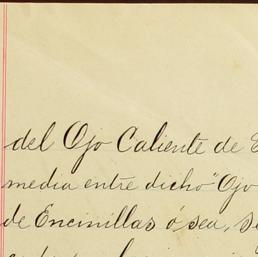 del Ojo Caliente de
media entre dicho "Ojo
de Encinillas ó sea,